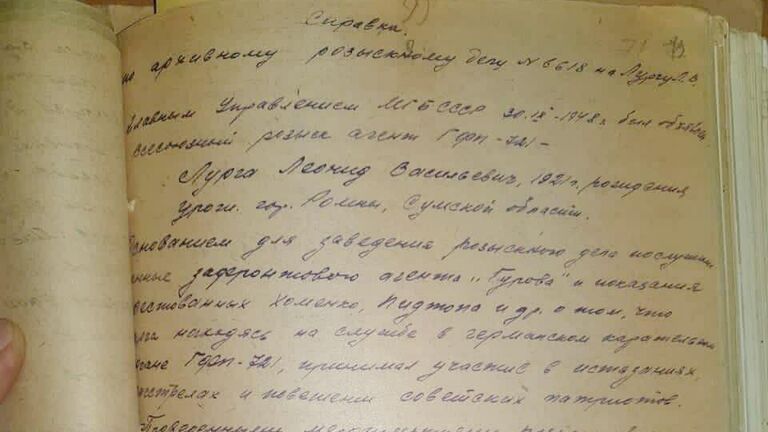 Справка.
по архивному розыскному делу № 6618 на Лургу Л.В.
Главным Управлением МГБ СССР 30.IX-1948 г. был объявлен
всесоюзный розыск агент ГФП-721-
Лурга Леонид Васильевич, 1921 г. рождения
урож. гор. Ромны, Сумской области.
Основанием для заведения розыскного дела послужили
данные зафронтового агента "Гурова" и показания
арестованных Хоменко, Пиджопа и др. о том, что
Лурга находясь на службе в германском карательном
органе ГФП-721, принимал участие в истязаниях,
расстрелах и повешении советских патриотов.